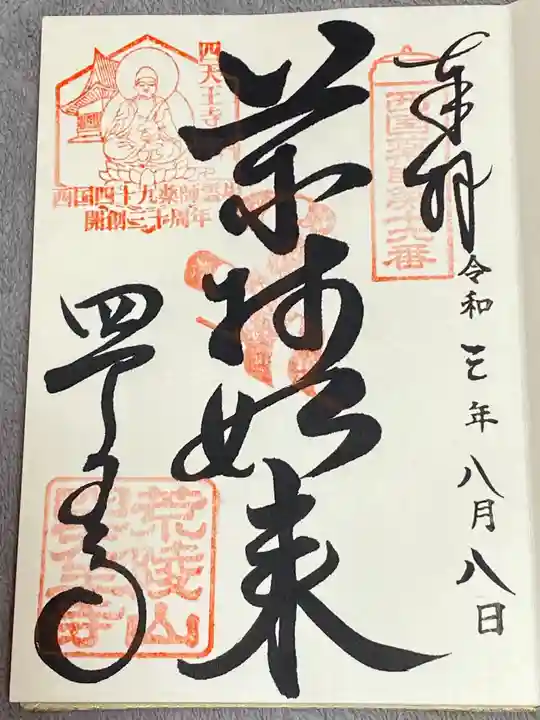 奉拝
西国薬師第十六番
令和三年八月八日
薬師如来
四天王寺
西国四十九薬師霊場
開創三十周年
四天王寺
荒陵山
四天王寺